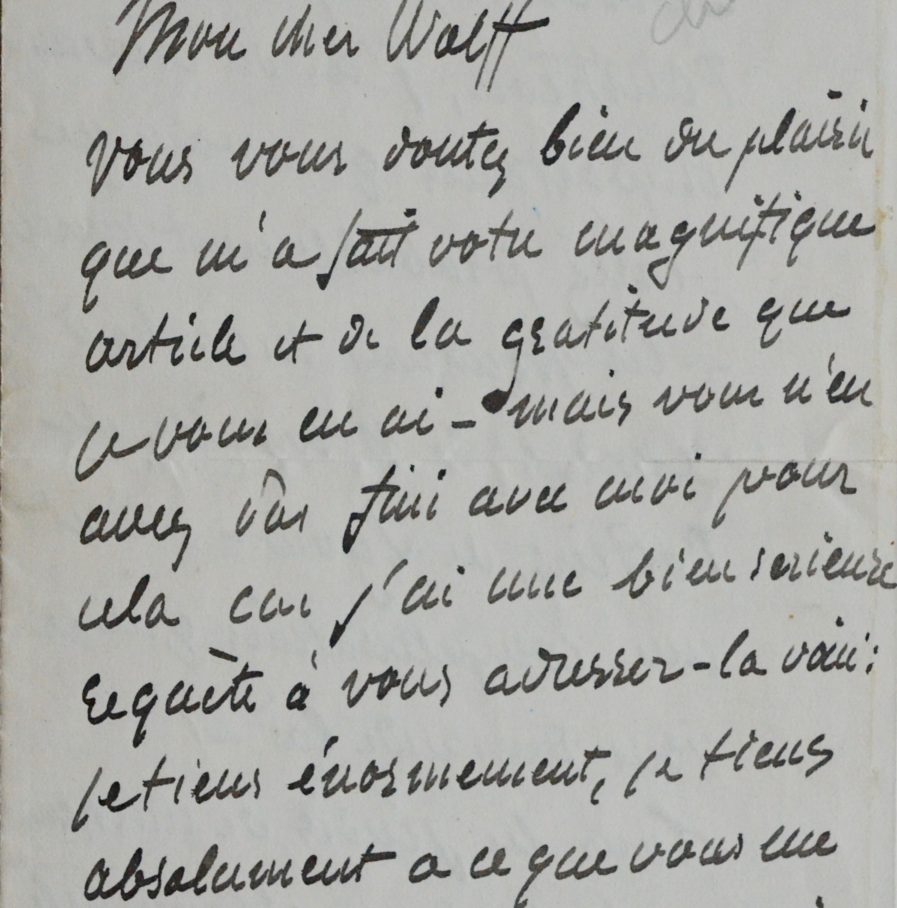 Mon cher Wolff
Vous vous doutez bien du plaisir
que m'a fait votre magnifique
article et de la gratitude que
je vous en ai - mais vous n'en
avez pas fini avec moi pour
cela car j'ai une bien serieuse
requète à vous adresser - la voici :
je tiens énormement, je tiens
absolument a ce que vous me